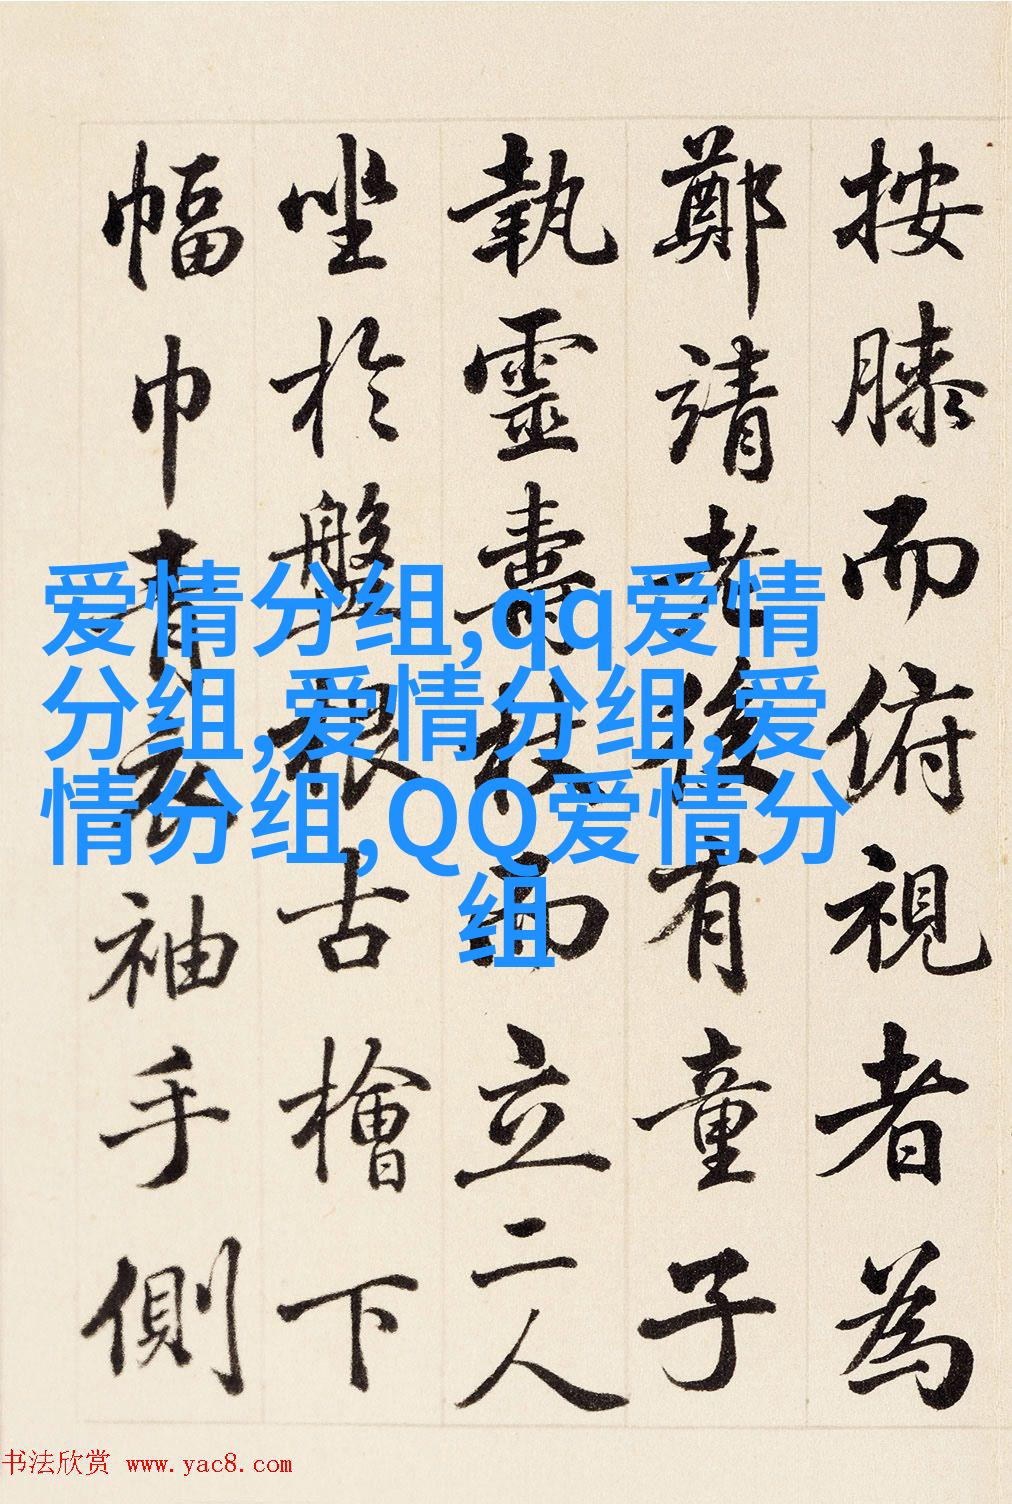 按膝而俯視者為
鄭靖老後有童子
執靈壽杖而立二人
坐於盤根古檜下
幅巾青衣袖手側
爱情分组,qq爱情
分组,爱情分组,爱
情分组,QQ爱情分
组
书法欣赏 www.yac8.com